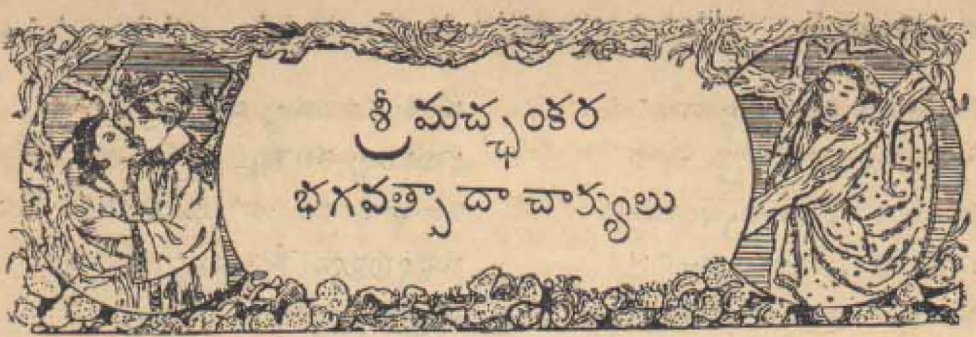 శ్రీ మచ్ఛంకర
భగవత్పాదా చార్యులు